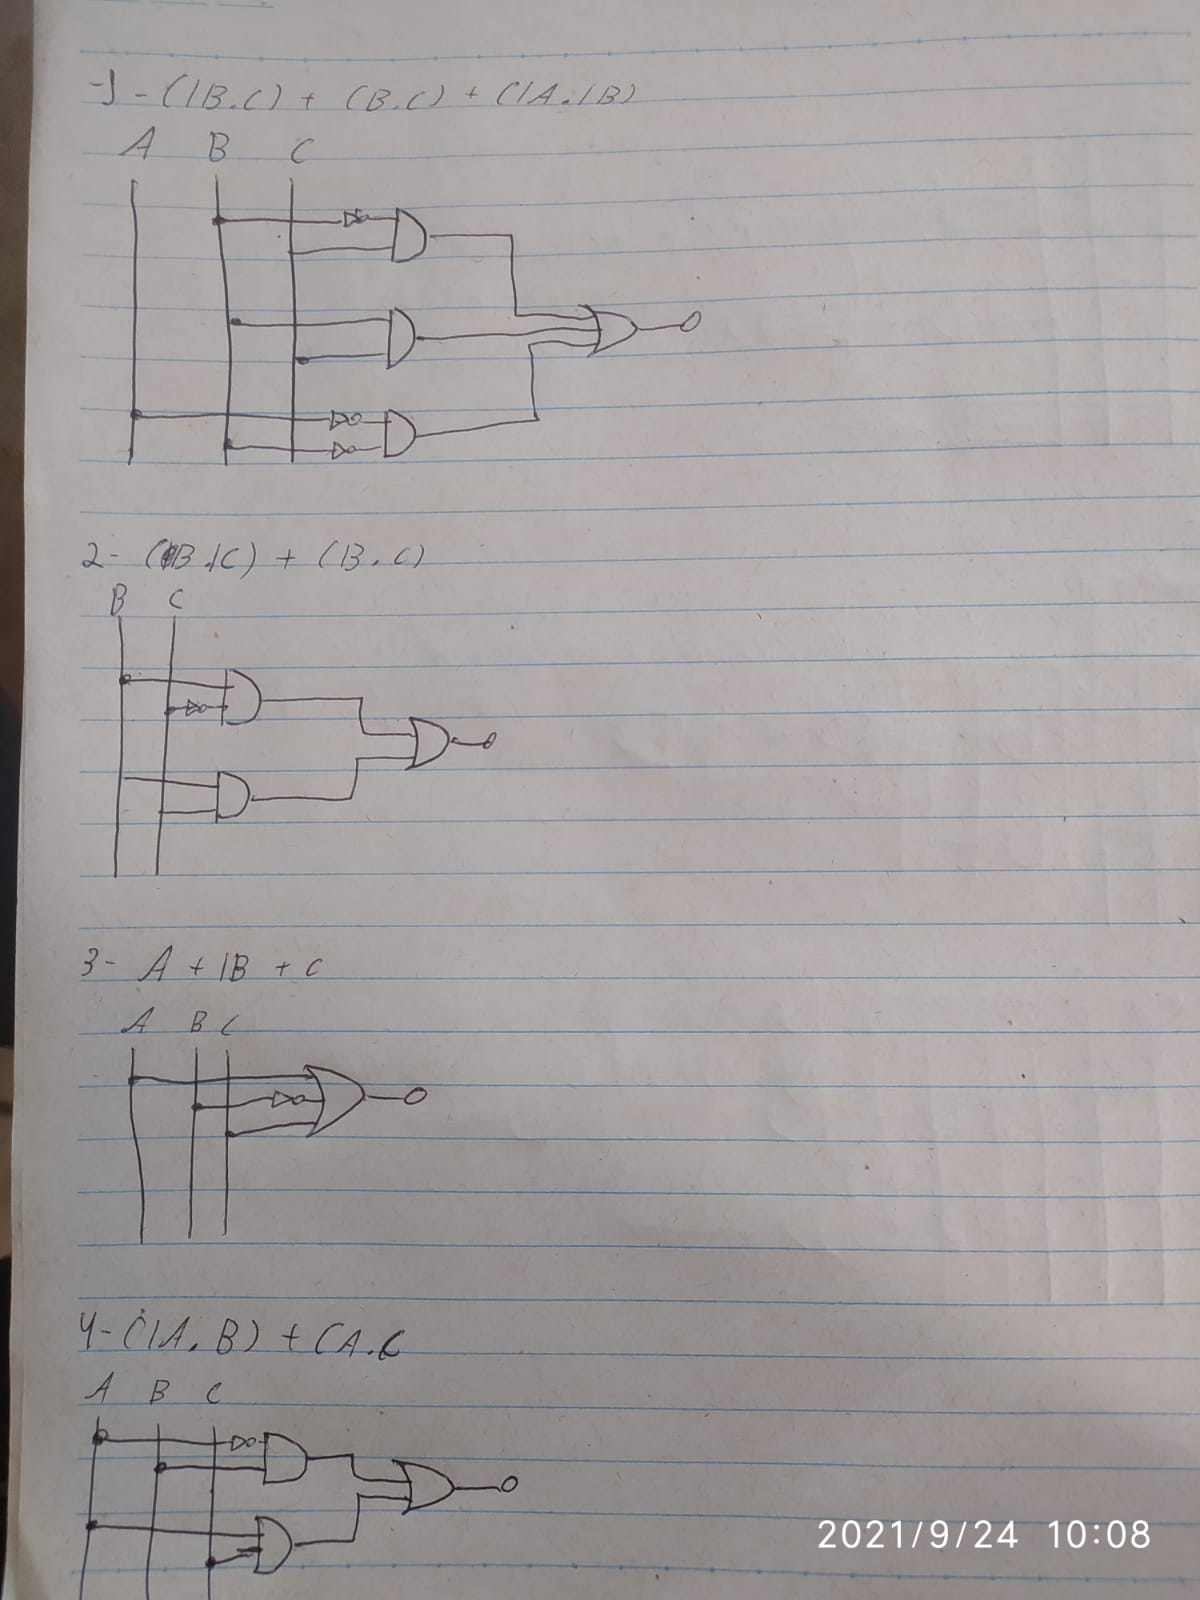 1-(1B.C) + (B.C) + (1A.1B)
A B C
2- (B.1C) + (B.C)
B C
3- A + 1B + C
A B C
4-(1A.B) + (A.C
A B C
2021/9/24 10:08